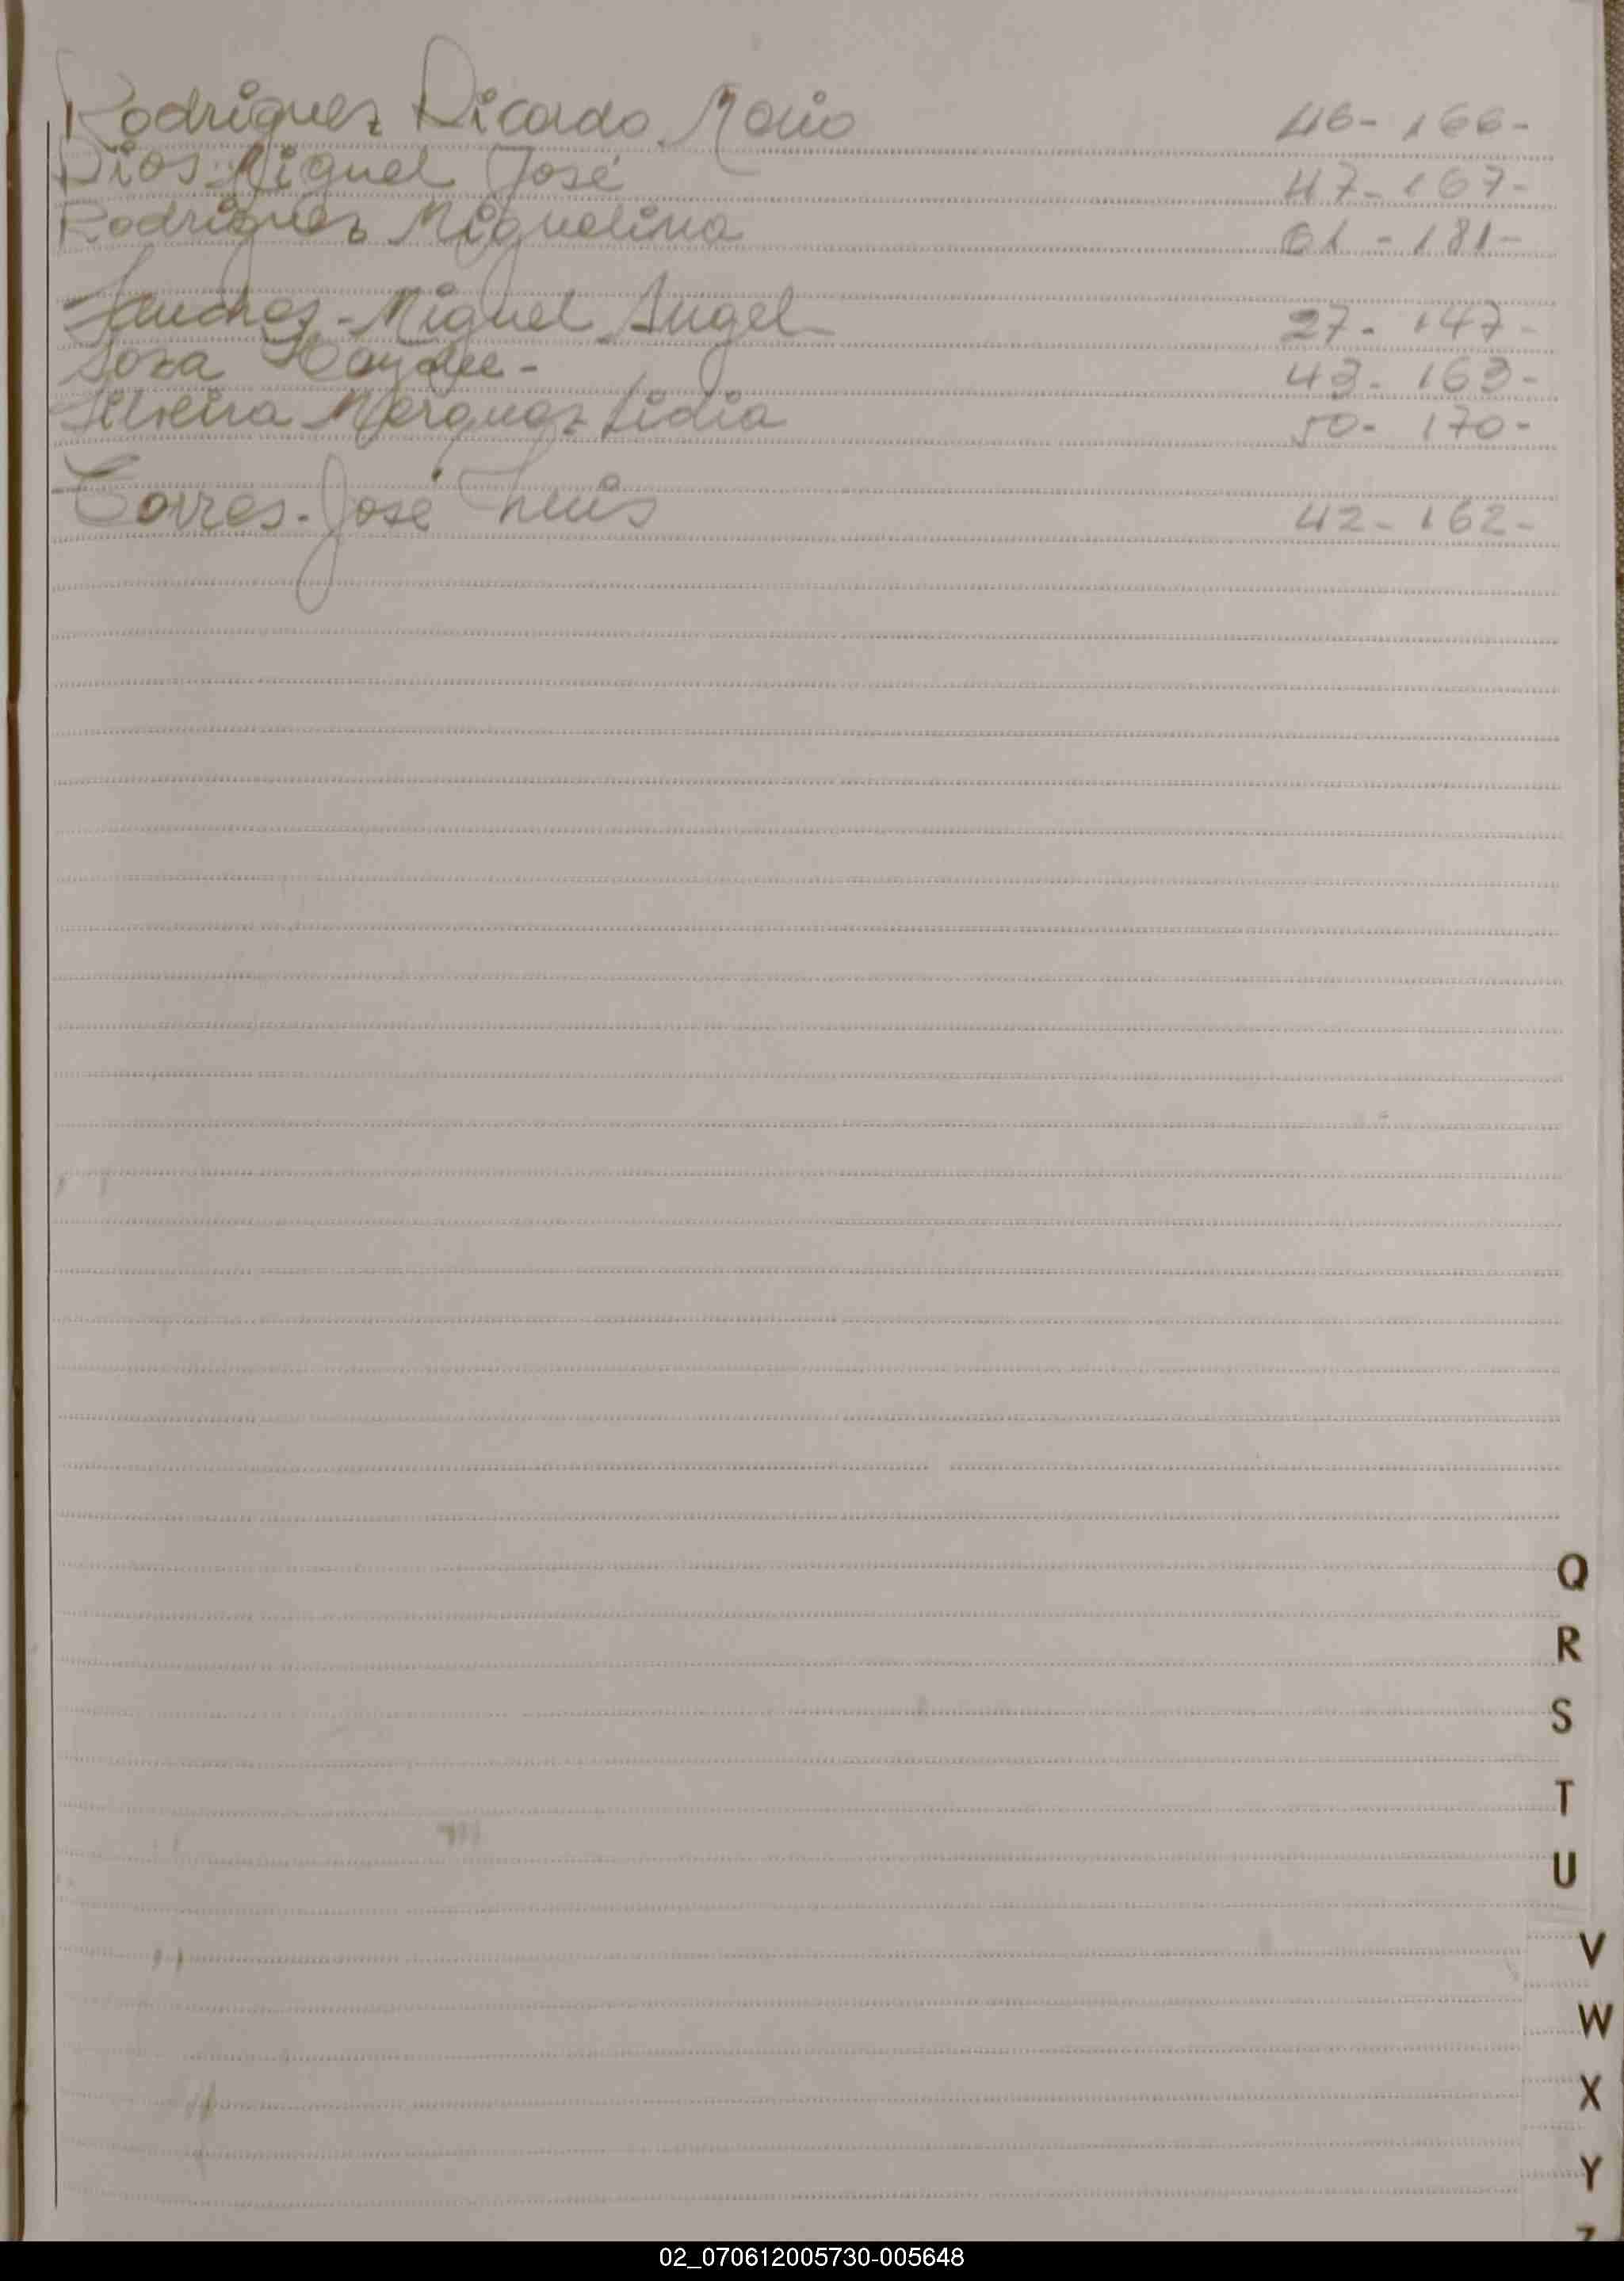 Rodriguez Ricardo Mario 46- 166-
Rios Miguel José 47- 167-
Rodriguez Miguelina 61 - 181-
Sanchez - Miguel Angel 27- 147-
Sosa Haydee - 43- 163-
Silveira Marquez Lidia 50- 170-
Torres - José Luis 42- 162-
Q
R
S
T
U
V
W
X
Y
Z
02_070612005730-005648